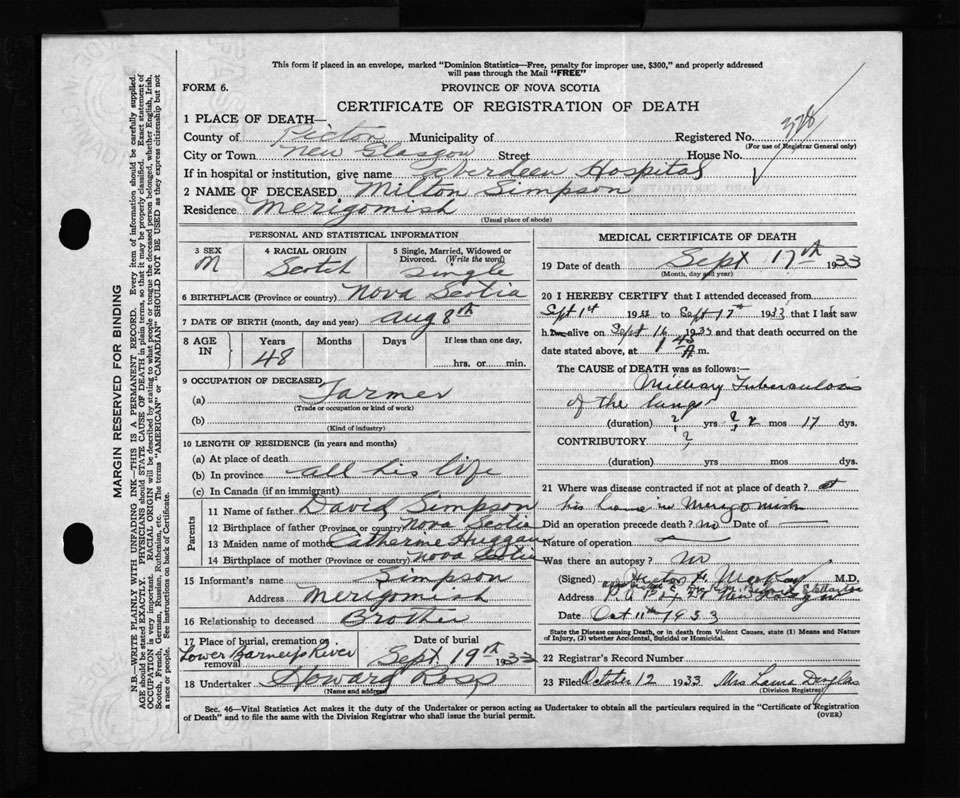 This form if placed in an envelope, marked "Dominion Statistics—Free, penalty for improper use, $300," and properly addressed
will pass through the Mail "FREE"
FORM 6.
PROVINCE OF NOVA SCOTIA
CERTIFICATE OF REGISTRATION OF DEATH
1 PLACE OF DEATH—
County of Pictou Municipality of Registered No. 378
(For use of Registrar General only)
City or Town New Glasgow Street House No.
If in hospital or institution, give name Aberdeen Hospital
2 NAME OF DECEASED Milton Simpson
Residence Merigomish
(Usual place of abode)
PERSONAL AND STATISTICAL INFORMATION
3 SEX M
4 RACIAL ORIGIN Scotch
5 Single, Married, Widowed or Divorced. (Write the word) Single
6 BIRTHPLACE (Province or country) Nova Scotia
7 DATE OF BIRTH (month, day and year) Aug 8th
8 AGE IN Years 48 Months Days If less than one day, hrs. or min.
9 OCCUPATION OF DECEASED
(a) Farmer
(Trade or occupation or kind of work)
(b)
(Kind of industry)
10 LENGTH OF RESIDENCE (in years and months)
(a) At place of death
(b) In province all his life
(c) In Canada (if an immigrant)
Parents
11 Name of father David Simpson
12 Birthplace of father (Province or country) Nova Scotia
13 Maiden name of mother Catherine Huggan
14 Birthplace of mother (Province or country) Nova Scotia
15 Informant's name Simpson
Address Merigomish
16 Relationship to deceased Brother
17 Place of burial, cremation or removal Lower Barneys River
Date of burial Sept 19th 1933
18 Undertaker Howard Ross
(Name and address)
MEDICAL CERTIFICATE OF DEATH
19 Date of death Sept 17th 1933
(Month, day and year)
20 I HEREBY CERTIFY that I attended deceased from
Sept 1st 1933 to Sept 17th 1933 that I last saw
him alive on Sept 16 1933 and that death occurred on the
date stated above, at 1 45 A m.
The CAUSE of DEATH was as follows:—
Milliary Tuberculosis
of the lungs
(duration) ? yrs ? mos 17 dys.
CONTRIBUTORY ?
(duration) yrs mos dys.
21 Where was disease contracted if not at place of death? at
his home in Merigomish
Did an operation precede death? no Date of —
Nature of operation —
Was there an autopsy? no
(Signed) MacKay M.D.
Address
Date Oct 11th 1933
State the Disease causing Death, or in death from Violent Causes, state (1) Means and Nature
of Injury, (2) whether Accidental, Suicidal or Homicidal.
22 Registrar's Record Number
23 Filed October 12 1933 Mrs Laura Douglas
(Division Registrar)
Sec. 46—Vital Statistics Act makes it the duty of the Undertaker or person acting as Undertaker to obtain all the particulars required in the "Certificate of Registration
of Death" and to file the same with the Division Registrar who shall issue the burial permit.
(OVER)
MARGIN RESERVED FOR BINDING
N.B.—WRITE PLAINLY WITH UNFADING INK—THIS IS A PERMANENT RECORD. Every item of information should be carefully supplied.
AGE should be stated EXACTLY. PHYSICIANS should STATE CAUSE OF DEATH in plain terms, so that it may be properly classified. Exact statement of
OCCUPATION is very important. RACIAL ORIGIN will be described by stating to what people or tongue the deceased person belonged, whether English, Irish,
Scotch, French, German, Russian, Ruthenian, etc. The terms "AMERICAN" or "CANADIAN" SHOULD NOT BE USED as they express citizenship but not
a race or people. See instructions on back of Certificate.